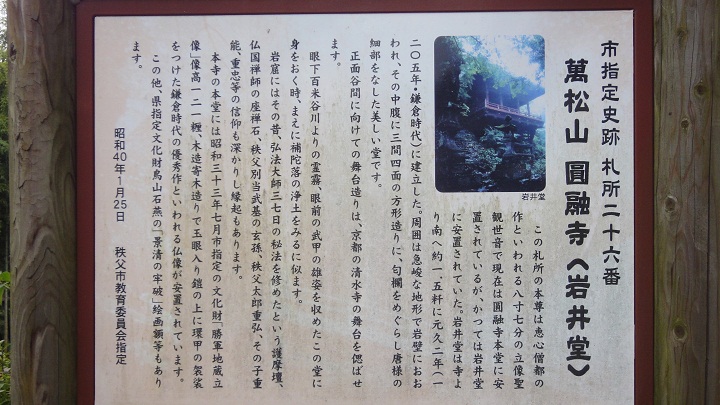 市指定史跡 札所二十六番
萬松山 圓融寺〈岩井堂〉
岩井堂
この札所の本尊は恵心僧都の
作といわれる八寸七分の立像聖
観世音で現在は圓融寺本堂に安
置されているが、かつては岩井堂
に安置されていた。岩井堂は寺よ
り南へ約一・五粁に元久二年(一
二〇五年・鎌倉時代)に建立した。周囲は急峻な地形で岩壁におお
われ、その中腹に三間四面の方形造りに、勾欄をめぐらし唐様の
細部をなした美しい堂です。
正面谷間に向けての舞台造りは、京都の清水寺の舞台を偲ばせ
ます。
眼下百米谷川よりの霊霧、眼前の武甲の雄姿を収めたこの堂に
身をおく時、まえに補陀落の浄土をみるに似ます。
岩窟にはその昔、弘法大師三七日の秘法を修めたという護摩壇、
仏国禅師の座禅石、秩父別当武基の玄孫、秩父太郎重弘、その子重
能、重忠等の信仰も深かりし縁起もあります。
本寺の本堂には昭和三十三年七月市指定の文化財「勝軍地蔵立
像」像高一二一糎、木造寄木造りで玉眼入り鎧の上に環甲の袈裟
をつけた鎌倉時代の優秀作といわれる仏像が安置されています。
この他、県指定文化財鳥山石燕の「景清の牢破」絵画額等もあり
ます。
昭和40年1月25日 秩父市教育委員会指定